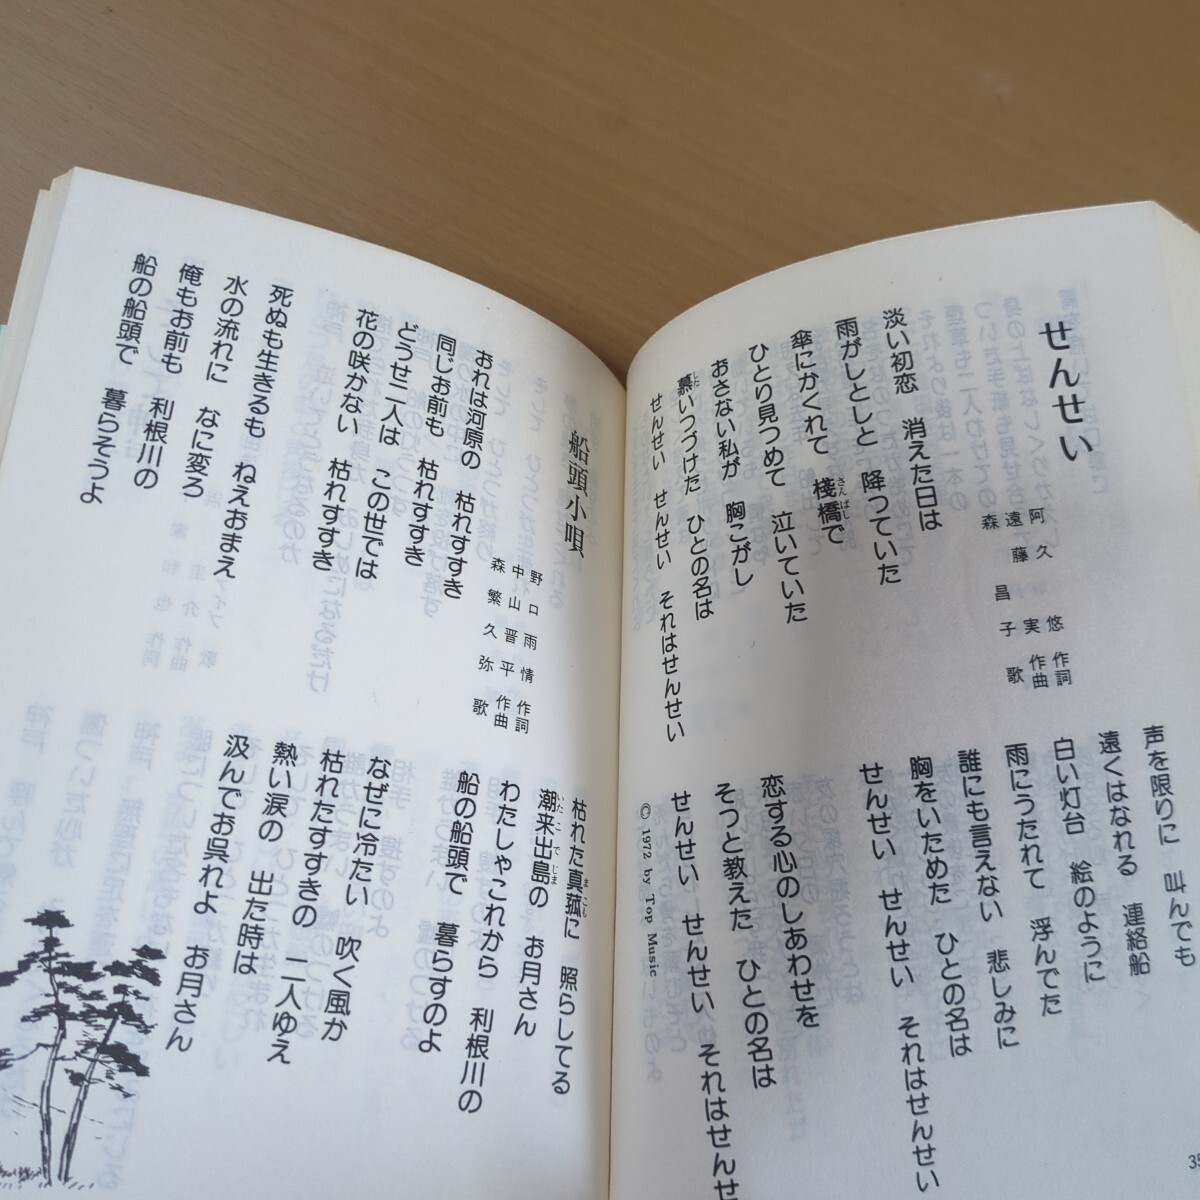 せんせい
阿久 悠 作詞
遠藤 実 作曲
森 昌子 歌
淡い初恋 消えた日は
雨がしとしと 降っていた
傘にかくれて 棧橋で
さんばし
ひとり見つめて 泣いていた
おさない私が 胸こがし
慕いつづけた ひとの名は
した
せんせい せんせい それはせんせい
声を限りに 叫んでも
遠くはなれる 連絡船
白い灯台 絵のように
雨にうたれて 浮んでた
誰にも言えない 悲しみに
胸をいためた ひとの名は
せんせい せんせい それはせんせい
恋する心のしあわせを
そっと教えた ひとの名は
せんせい せんせい それはせんせい
© 1972 by Top Music
35
船頭小唄
野口雨情 作詞
中山晋平 作曲
森繁久弥 歌
おれは河原の 枯れすすき
同じお前も 枯れすすき
どうせ二人は この世では
花の咲かない 枯れすすき
死ぬも生きるも ねえおまえ
水の流れに なに変ろ
俺もお前も 利根川の
船の船頭で 暮らそうよ
枯れた真菰に 照らしてる
まこも
潮来出島の お月さん
いたこでじま
わたしゃこれから 利根川の
船の船頭で 暮らすのよ
なぜに冷たい 吹く風か
枯れたすすきの 二人ゆえ
熱い涙の 出た時は
汲んでお呉れよ お月さん